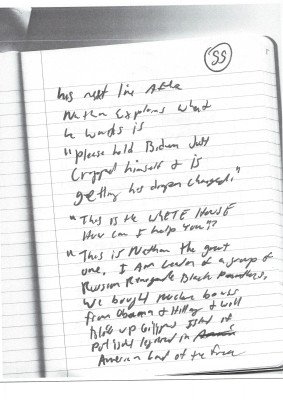 SS
his next line After
Nathan Explains what
he wants is
"please hold Biden Just
Crapped himself & is
getting his diaper changed."
"This is the WHITE HOUSE
How can I help you"?
"This is Nathan the great
one. I Am Leader of a group of
Russian Renegade Black Panthers,
we bought nuclear bombs
from Obama & Hillary & will
Blow up Gilligans Island if
pot isnt legalized in
America land of the free